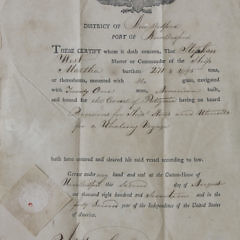 DISTRICT OF New Bedford
PORT OF New Bedford
THESE CERTIFY to whom it doth concern, That Stephen
West Master or Commander of the Ship
Martha burthen tons,
or thereabouts, mounted with No guns, navigated
with Twenty One men, American
built, and bound for the Coast of having on board
Provisions for Said Ship and Utensils
for a Whaling Voyage
hath here entered and cleared his said vessel according to law.
GIVEN under my hand and seal at the Custom-House of
New Bedford this second day of August
one thousand eight hundred and seventeen and in the
forty second year of the Independence of the United States
of America.